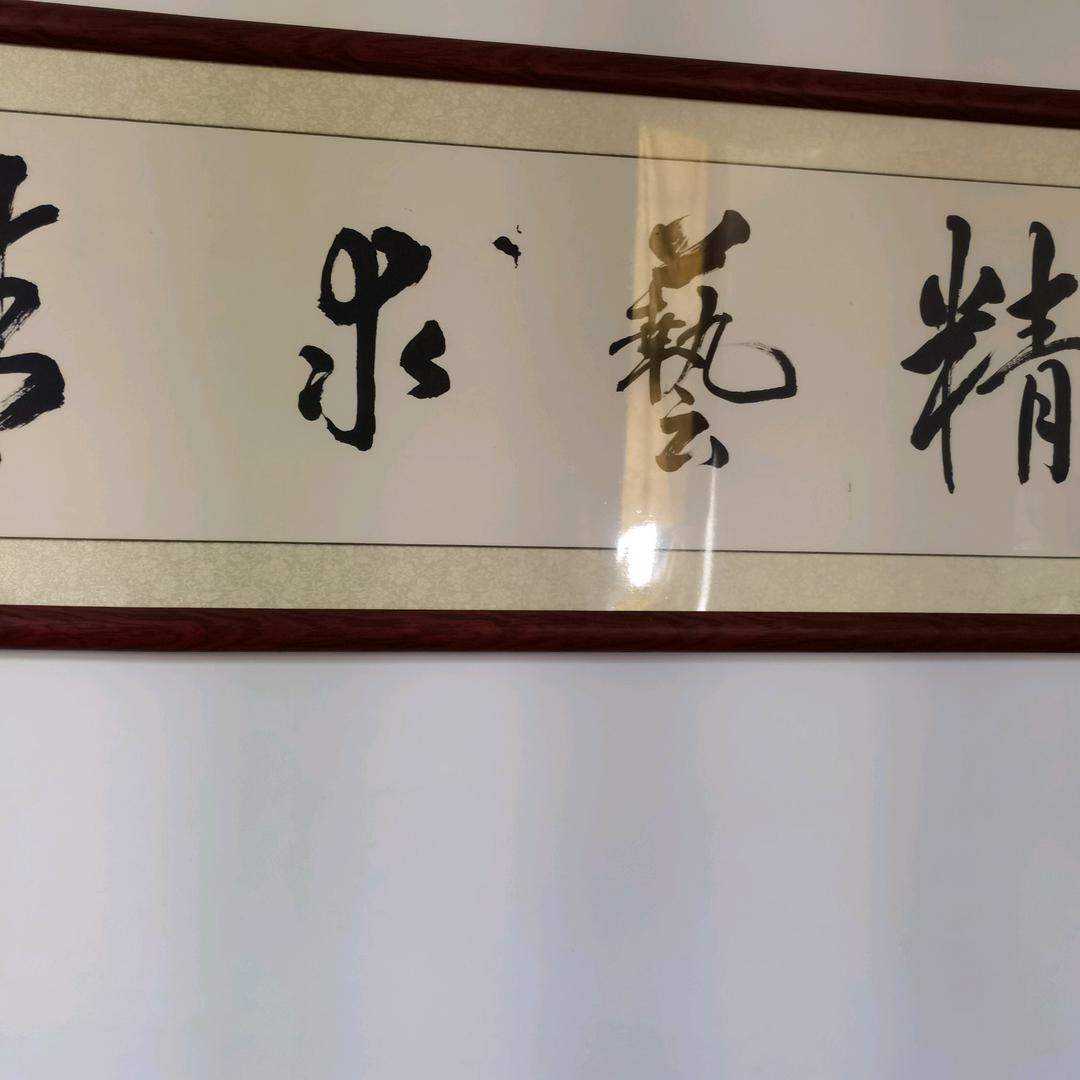 精藝求